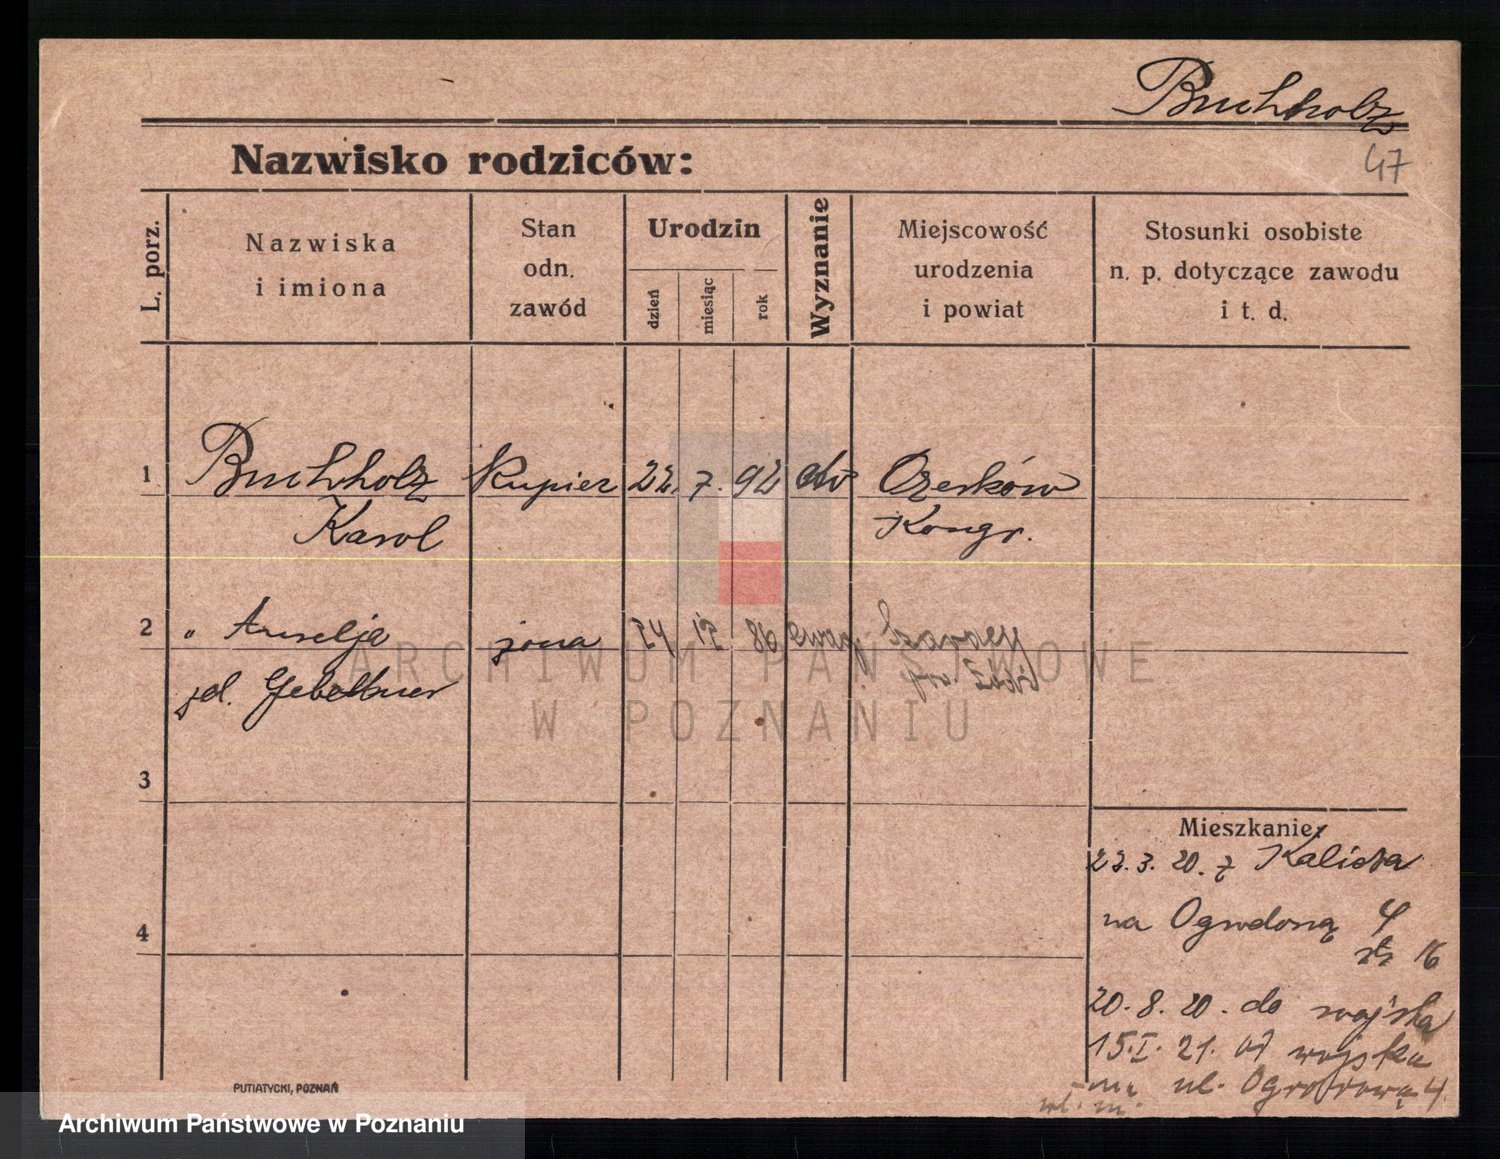 Buchholz
47
Nazwisko rodziców:
L. porz.
Nazwiska
i imiona
Stan
odn.
zawód
Urodzin
dzień
miesiąc
rok
Wyznanie
Miejscowość
urodzenia
i powiat
Stosunki osobiste
n. p. dotyczące zawodu
i t. d.
1 Buchholz kupiec 22. 7. 92 Ozorków
Karol Kongr.
2 " Aurelja żona 24 12 86 ewang.
gd. Gebethner
3
Mieszkanie
22.3.20. z Kalisza
4
na Ogrodową 4
16
20.8.20. do wojska
15.I.21. od wojska
na ul. Ogrodową 4
PUTIATYCKI, POZNAŃ
ARCHIWUM PAŃSTWOWE
W POZNANIU
Archiwum Państwowe w Poznaniu